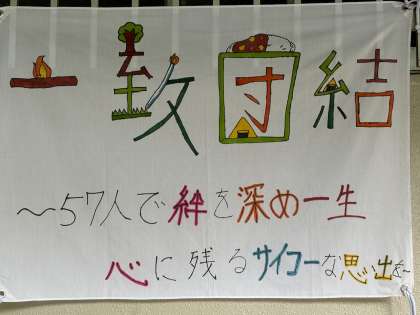 一致団結
～57人で絆を深め一生
心に残るサイコーな思い出を～